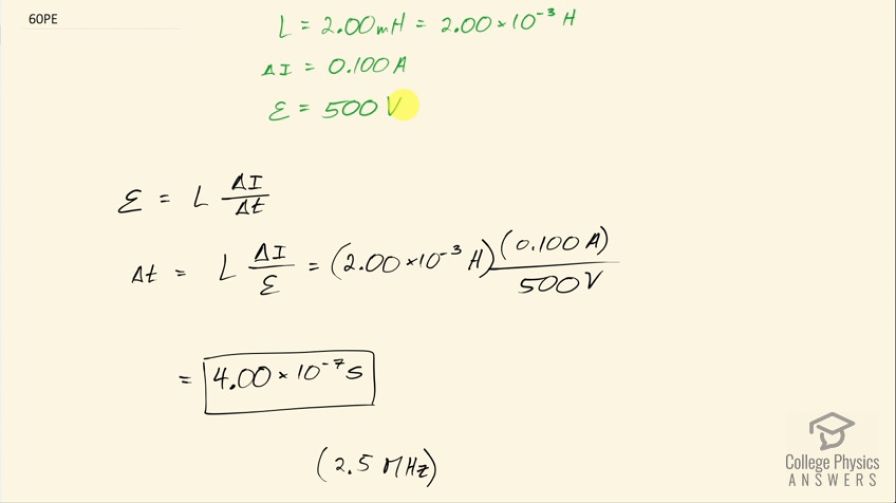 60PE
L = 2.00mH = 2.00×10⁻³ H
ΔI = 0.100A
ε = 500 V
ε = L ΔI/Δt
Δt = L ΔI/ε = (2.00×10⁻³ H)(0.100A)/500V
= 4.00×10⁻⁷s
(2.5 MHz)
College Physics
ANSWERS